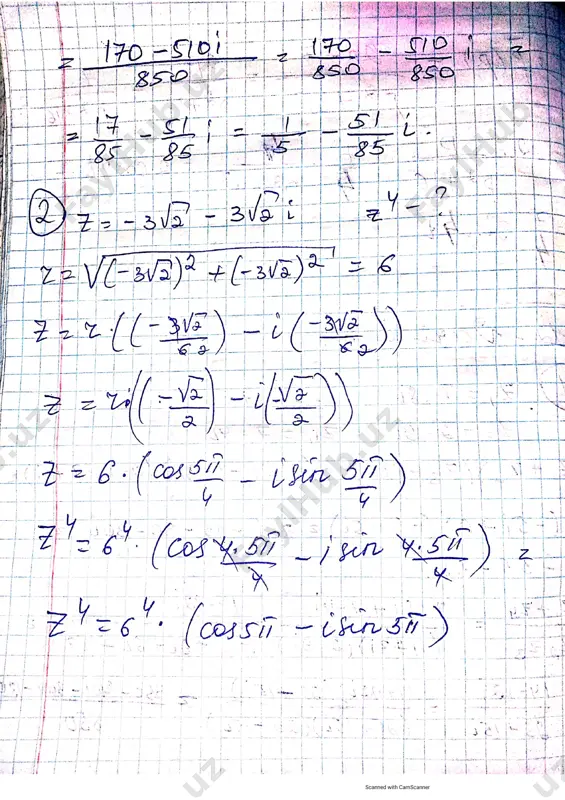 = (170 - 510i)/850 = 170/850 - 510/850 i =
= 17/85 - 51/85 i = 1/5 - 51/85 i.
② z = -3√2 - 3√2 i z⁴ - ?
r = √((-3√2)² + (-3√2)²) = 6
z = r·((-3√2/6 2) - i(-3√2/6 2))
z = r·((-√2/2) - i(-√2/2))
z = 6·(cos 5π/4 - i sin 5π/4)
z⁴ = 6⁴·(cos 4·5π/4 - i sin 4·5π/4) =
z⁴ = 6⁴·(cos5π - i sin5π)
FaylHub.uz
FaylHub.uz
Scanned with CamScanner